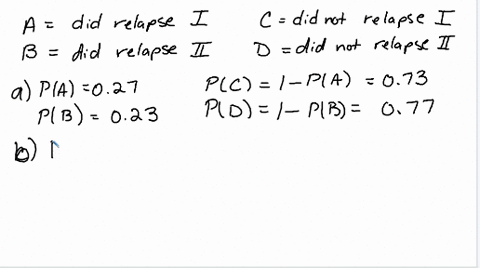 A = did relapse I C = did not relapse I
B = did relapse II D = did not relapse II
a) P(A) = 0.27 P(C) = 1 - P(A) = 0.73
P(B) = 0.23 P(D) = 1 - P(B) = 0.77
b)